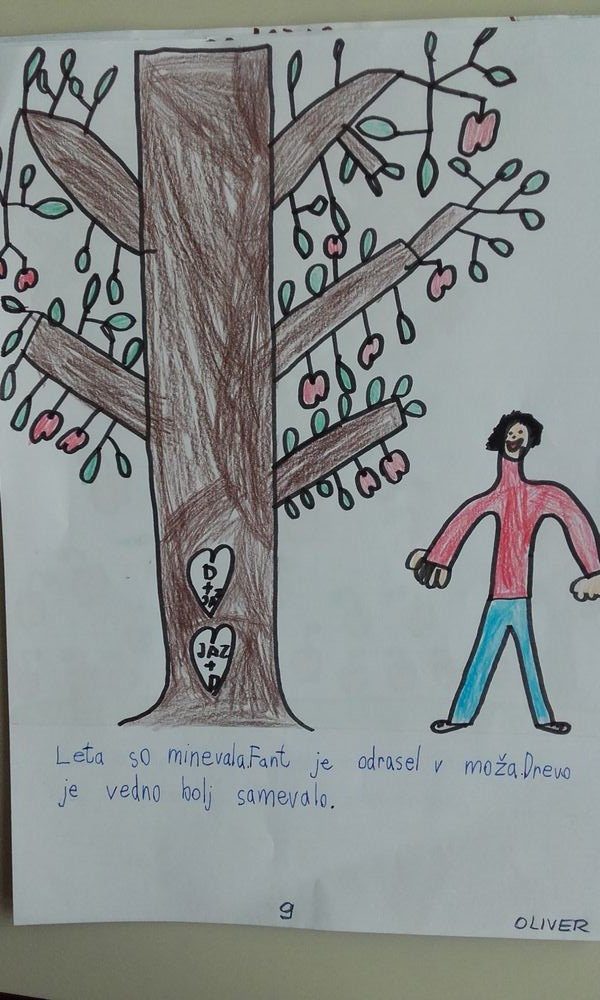 D
+
JAZ
JAZ
+
D
Leta so minevala.Fant je odrasel v moža.Drevo
je vedno bolj samevalo.
9
OLIVER